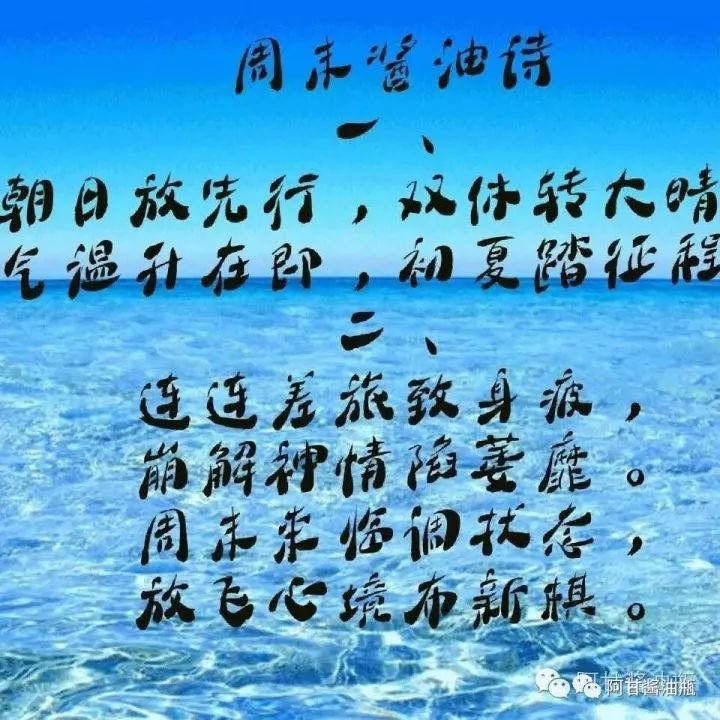 周末酱油诗
一、
朝日放先行，双休转大晴
气温升在即，初夏踏征程
二、
连连差旅致身疲，
崩解神情陷萎靡。
周末来临调状态，
放飞心境布新棋。
阿甘酱油瓶
阿甘酱油瓶